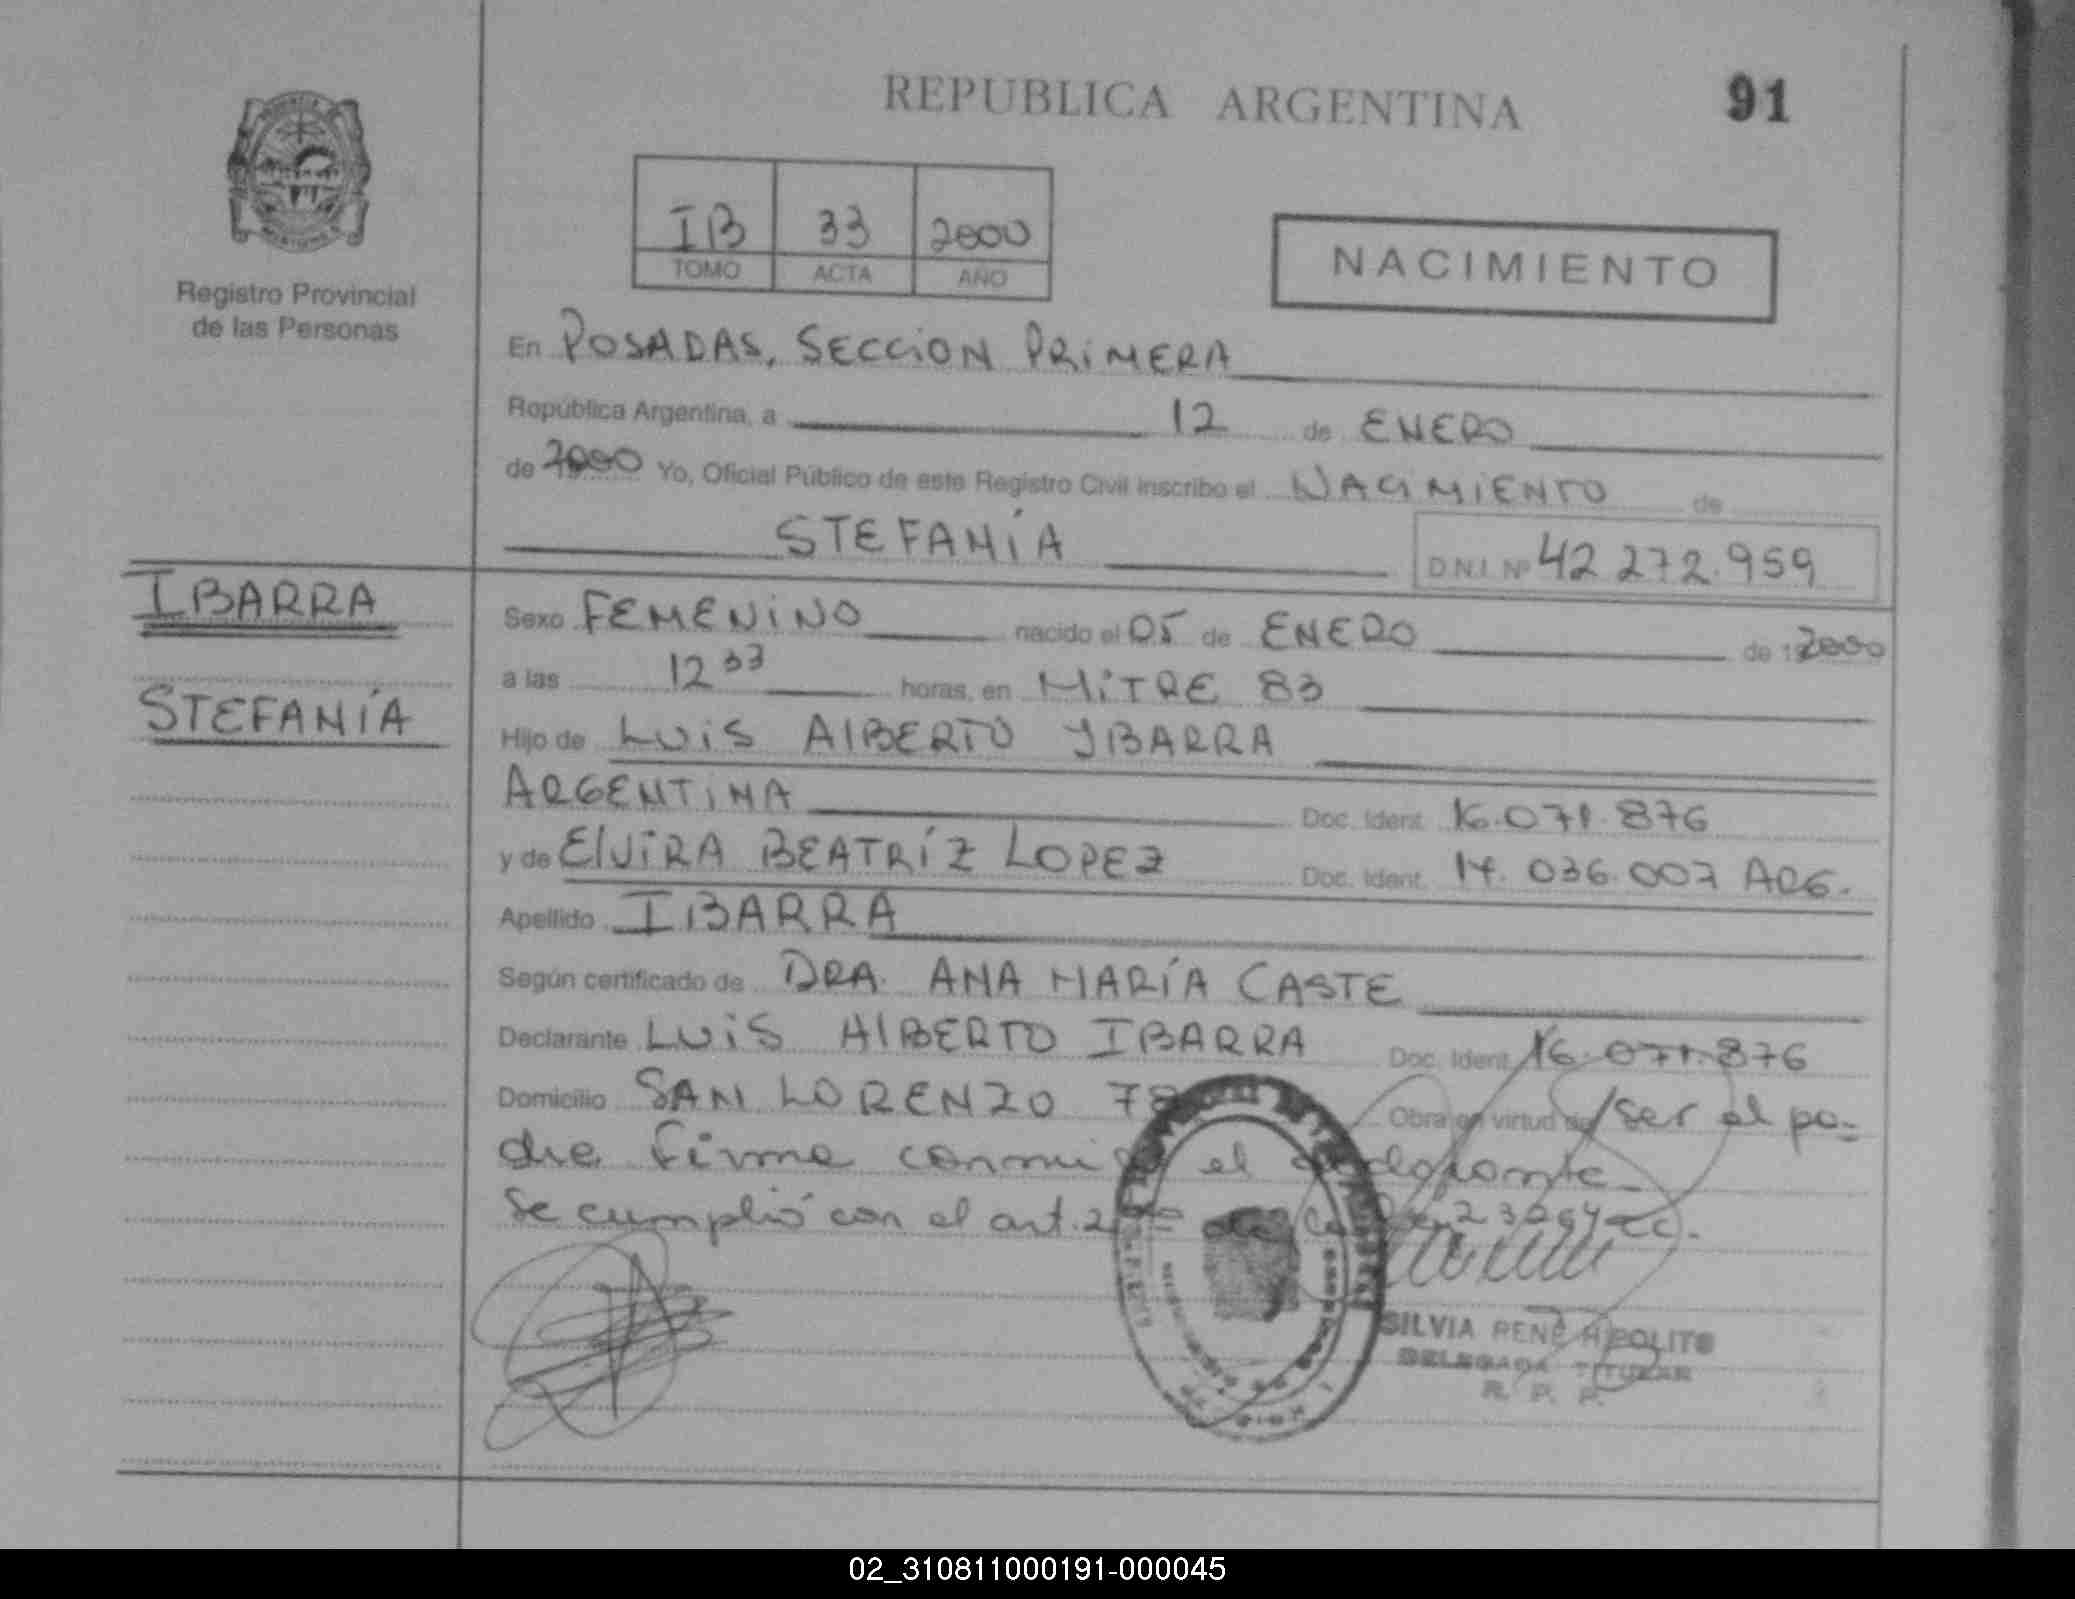 REPUBLICA ARGENTINA
91
Registro Provincial
de las Personas
IB 33 2000
TOMO ACTA AÑO
NACIMIENTO
En POSADAS, SECCION PRIMERA
República Argentina, a 12 de ENERO
de 2000 Yo, Oficial Público de este Registro Civil inscribo el NACIMIENTO de
STEFANÍA
D.N.I. Nº 42 272.959
IBARRA
STEFANÍA
Sexo FEMENINO nacido el 05 de ENERO de 2000
a las 12 33 horas, en MITRE 83
Hijo de LUIS ALBERTO YBARRA
ARGENTINA Doc. Ident. 16.071.876
y de ELVIRA BEATRÍZ LOPEZ Doc. Ident. 14.036.007 ARG.
Apellido IBARRA
Según certificado de DRA. ANA MARÍA CASTE
Declarante LUIS ALBERTO IBARRA Doc. Ident. 16.071.876
Domicilio SAN LORENZO Obra en virtud de ser el pa-
dre. Firma conmigo el declarante.
Se cumplió con el art. 23264
SILVIA RENÉ HIPOLITO
DELEGADA TITULAR
R. P. P.
02_310811000191-000045